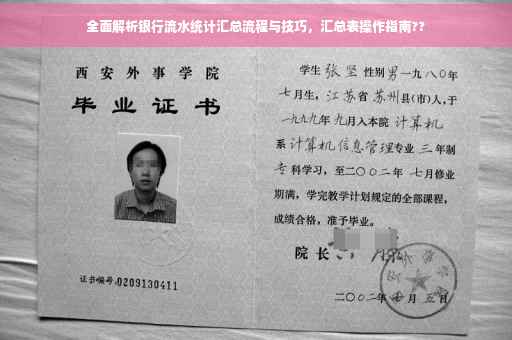 全面解析银行流水统计汇总流程与技巧，汇总表操作指南??
西安外事学院
毕业证书
证书编号:0209130411
学生 张坚 性别 男 一九八〇年
七月生，江苏省 苏州县(市)人，于
一九九九年 九月入本院 计算机
系 计算机信息管理专业 三 年制
专科学习，至二〇〇二年 七月修业
期满，学完教学计划规定的全部课程，
成绩合格，准予毕业。
院长
二〇〇二年 月 五日